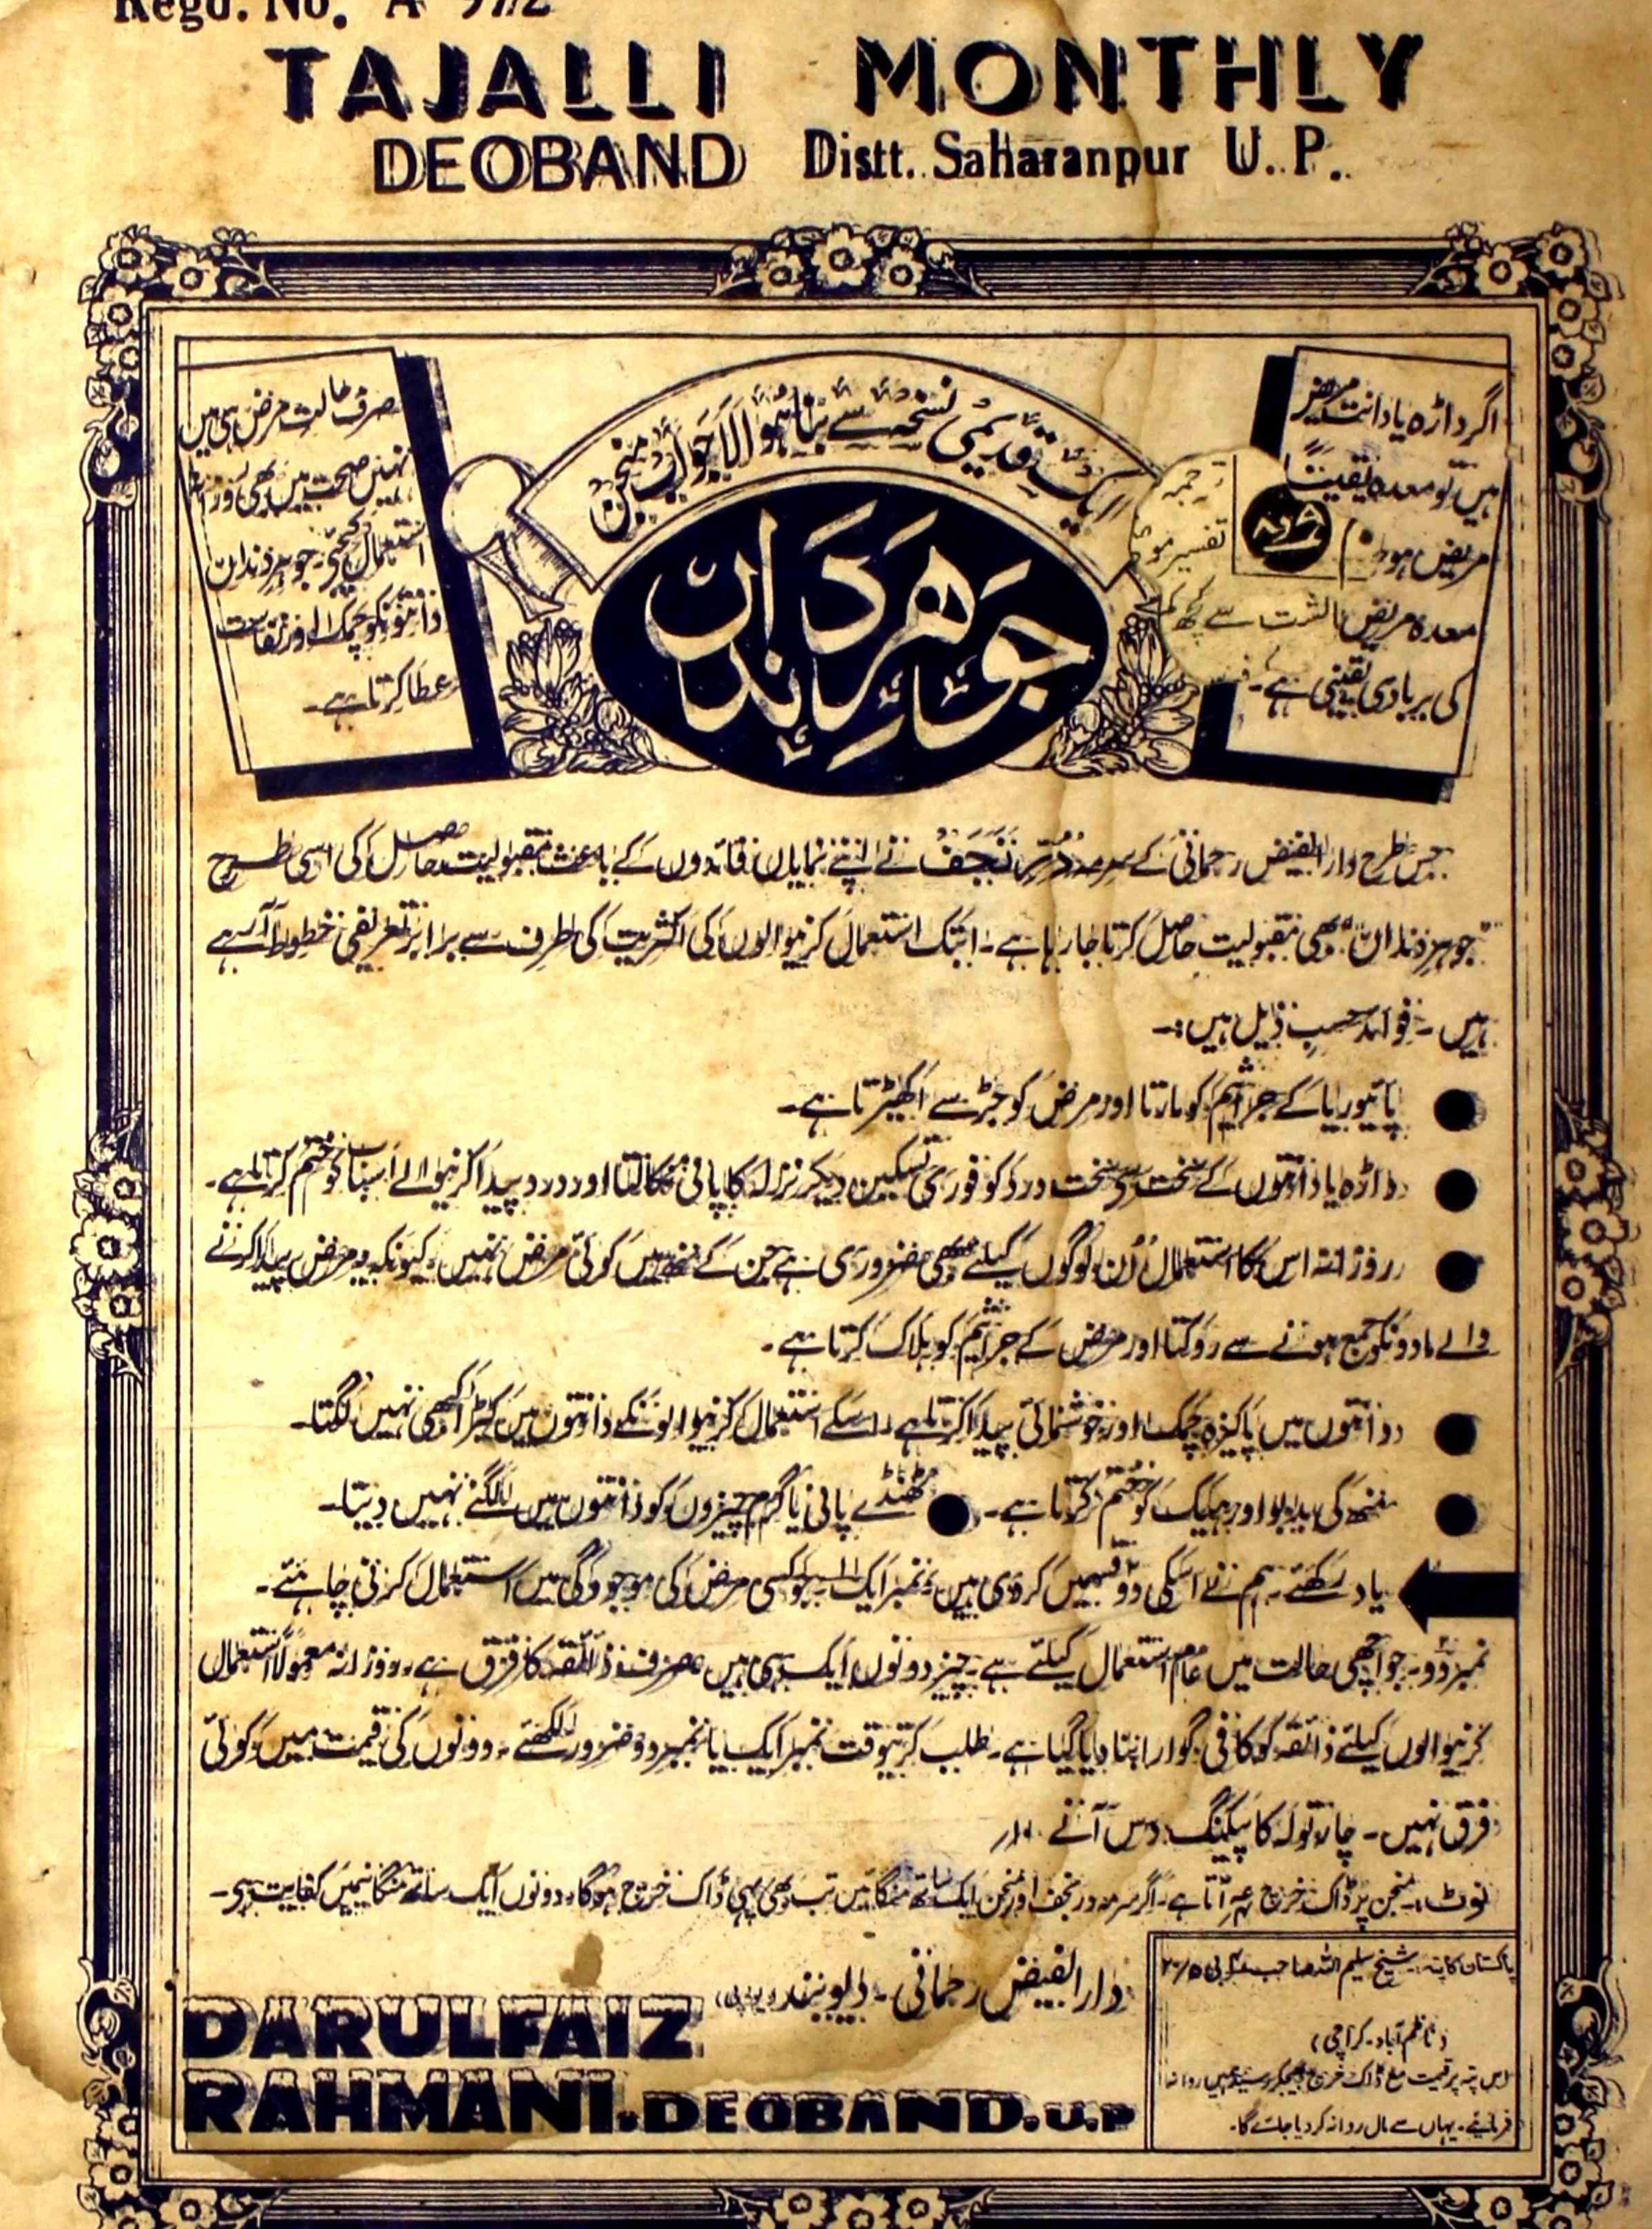 Regd. No. A
TAJALLI MONTHLY
DEOBAND Distt. Saharanpur U. P.
اگر داڑھ یا دانت مریض
ہیں تو معدہ یقیناً
مریض ہوگا
معدہ مریض
کی بربادی یقینی ہے۔
ترجمہ
تفسیر
سے کچھ کم
ایک قدیمی نسخے سے بنا ہوا لاجواب منجن
جوہر دنداں
صرف حالت مرض ہی میں
نہیں صحت میں بھی روزانہ
استعمال کیجئے۔ جوہر دنداں
دانتونکو چمک اور نفاست
عطا کرتا ہے۔
جس طرح دارالفیض رحمانی کے سرمہ دُرِّ نجف نے اپنے نمایاں فائدوں کے باعث مقبولیت حاصل کی اسی طرح
"جوہر دنداں" بھی مقبولیت حاصل کرتا جا رہا ہے۔ ابتک استعمال کرنیوالوں کی اکثریت کی طرف سے برابر تعریفی خطوط آ رہے
ہیں۔ فوائد حسبِ ذیل ہیں:۔
● پائیوریا کے جراثیم کو مارتا اور مرض کو جڑ سے اکھیڑتا ہے۔
● داڑھ یا دانتوں کے سخت سے سخت درد کو فوری تسکین دیکر نزلہ کا پانی نکالتا اور درد پیدا کرنیوالے اسباب کو ختم کرتا ہے۔
● روزانہ اس کا استعمال اُن لوگوں کیلئے بھی ضروری ہے جن کے منھ میں کوئی مرض نہیں۔ کیونکہ یہ مرض پیدا کرنے
والے مادونکو جمع ہونے سے روکتا اور مرض کے جراثیم کو ہلاک کرتا ہے۔
● دانتوں میں پاکیزہ چمک اور خوشنمائی پیدا کرتا ہے۔ اسکے استعمال کرنیوالونکے دانتوں میں کیڑا کبھی نہیں لگتا۔
● منھ کی بدبو اور بھیک کو ختم کرتا ہے۔ ● ٹھنڈے پانی یا گرم چیزوں کو دانتوں میں لگنے نہیں دیتا۔
یاد رکھئے۔ ہم نے اسکی دو قسمیں کردی ہیں، نمبر ایک جو کسی مرض کی موجودگی میں استعمال کرنی چاہئے۔
نمبر دو۔ جو اچھی حالت میں عام استعمال کیلئے ہے۔ چیز دونوں ایک ہی ہیں صرف ذائقہ کا فرق ہے۔ روزانہ معمولاً استعمال
کرنیوالوں کیلئے ذائقہ کو کافی گوارا بنا دیا گیا ہے۔ طلب کرتیوقت نمبر ایک یا نمبر دو ضرور لکھئے۔ دونوں کی قیمت میں کوئی
فرق نہیں۔ چار تولہ کا پیکنگ دس آنے ۱۰؍
نوٹ:۔ منجن پر ڈاک خرچ آتا ہے۔ اگر سرمہ در نجف اور منجن ایک ساتھ منگائیں تب بھی یہی ڈاک خرچ ہوگا۔ دونوں ایک ساتھ منگانیمیں کفایت ہے۔
دارالفیض رحمانی۔ دیوبند (یو۔پی)
DARULFAIZ
RAHMANI. DEOBAND. U.P
پاکستان کا پتہ:۔ شیخ سلیم اللہ صاحب
(ناظم آباد۔ کراچی)
اس پتہ پر قیمت مع ڈاک خرچ بھیجکر رسید ہمیں روانہ
فرمائیے۔ یہاں سے مال روانہ کردیا جائے گا۔